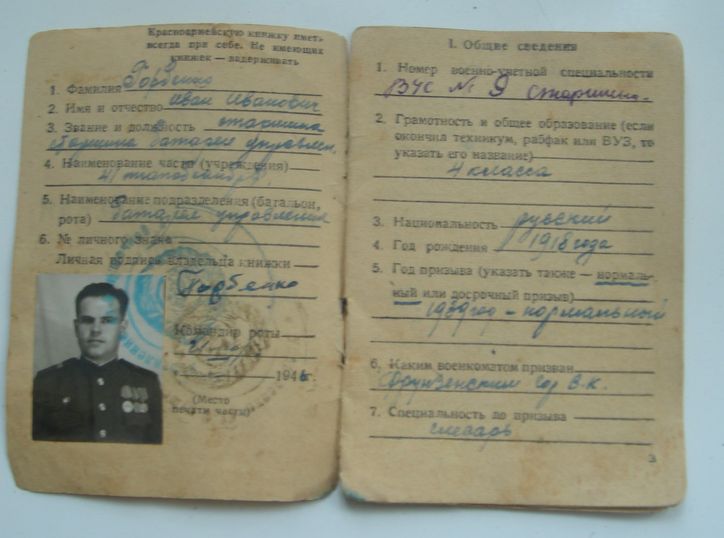 Красноармейскую книжку иметь
всегда при себе. Не имеющих
книжек — задерживать
1. Фамилия Горбенко
2. Имя и отчество Иван Иванович
3. Звание и должность старшина
старшина батареи управлен.
4. Наименование части (учреждения)
41
5. Наименование подразделения (батальон,
рота) батарея управления
6. № личного знака
Личная подпись владельца книжки
Горбенко
Командир роты
194 г.
(Место
печати части)
I. Общие сведения
1. Номер военно-учетной специальности
ВУС № 9 старшина.
2. Грамотность и общее образование (если
окончил техникум, рабфак или ВУЗ, то
указать его название)
4 класса
3. Национальность русский
4. Год рождения 1918 года
5. Год призыва (указать также — нормаль-
ный или досрочный призыв)
1939 год - нормальный
6. Каким военкоматом призван
Фрунзенским гор В.К.
7. Специальность до призыва
слесарь
3